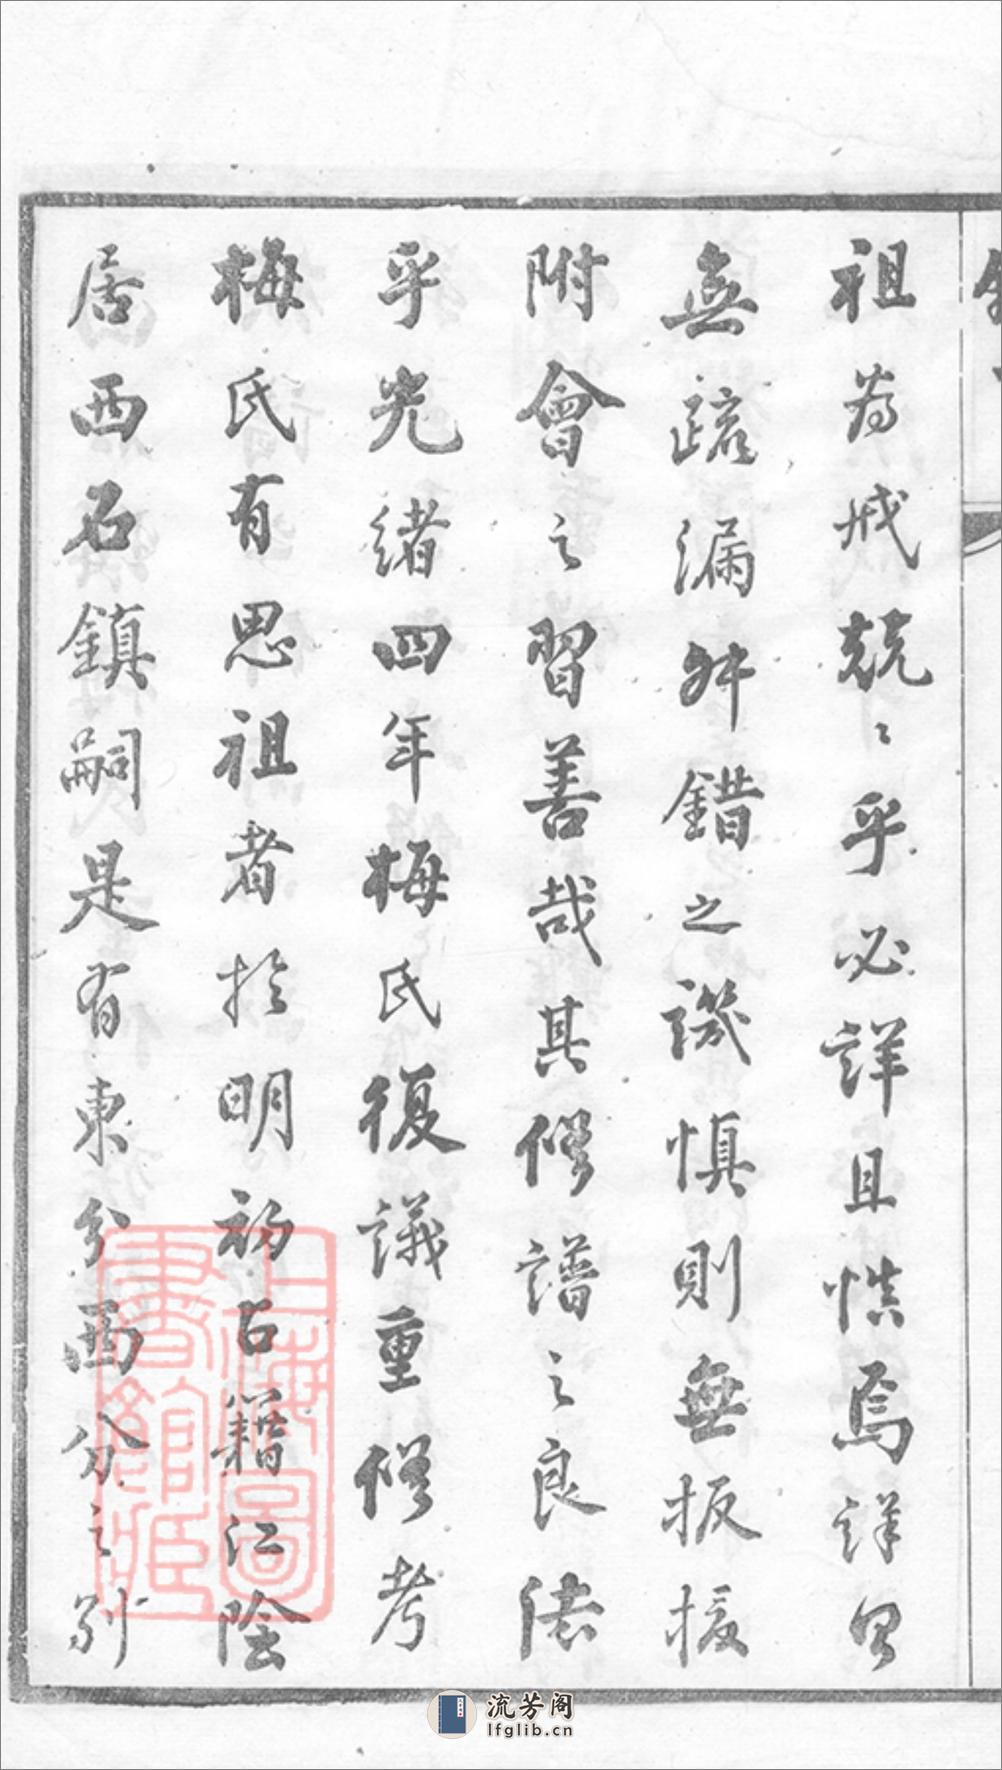 祖為戒兢〻乎必詳且慎焉詳則
無疏漏舛錯之譏慎則無扳援
附會之習善哉其修譜之良法
乎光緒四年梅氏復議重修考
梅氏有思祖者於明初占籍江陰
居西石鎮嗣是有東分西分之別
上海圖書館藏
流芳阁
lfglib.cn